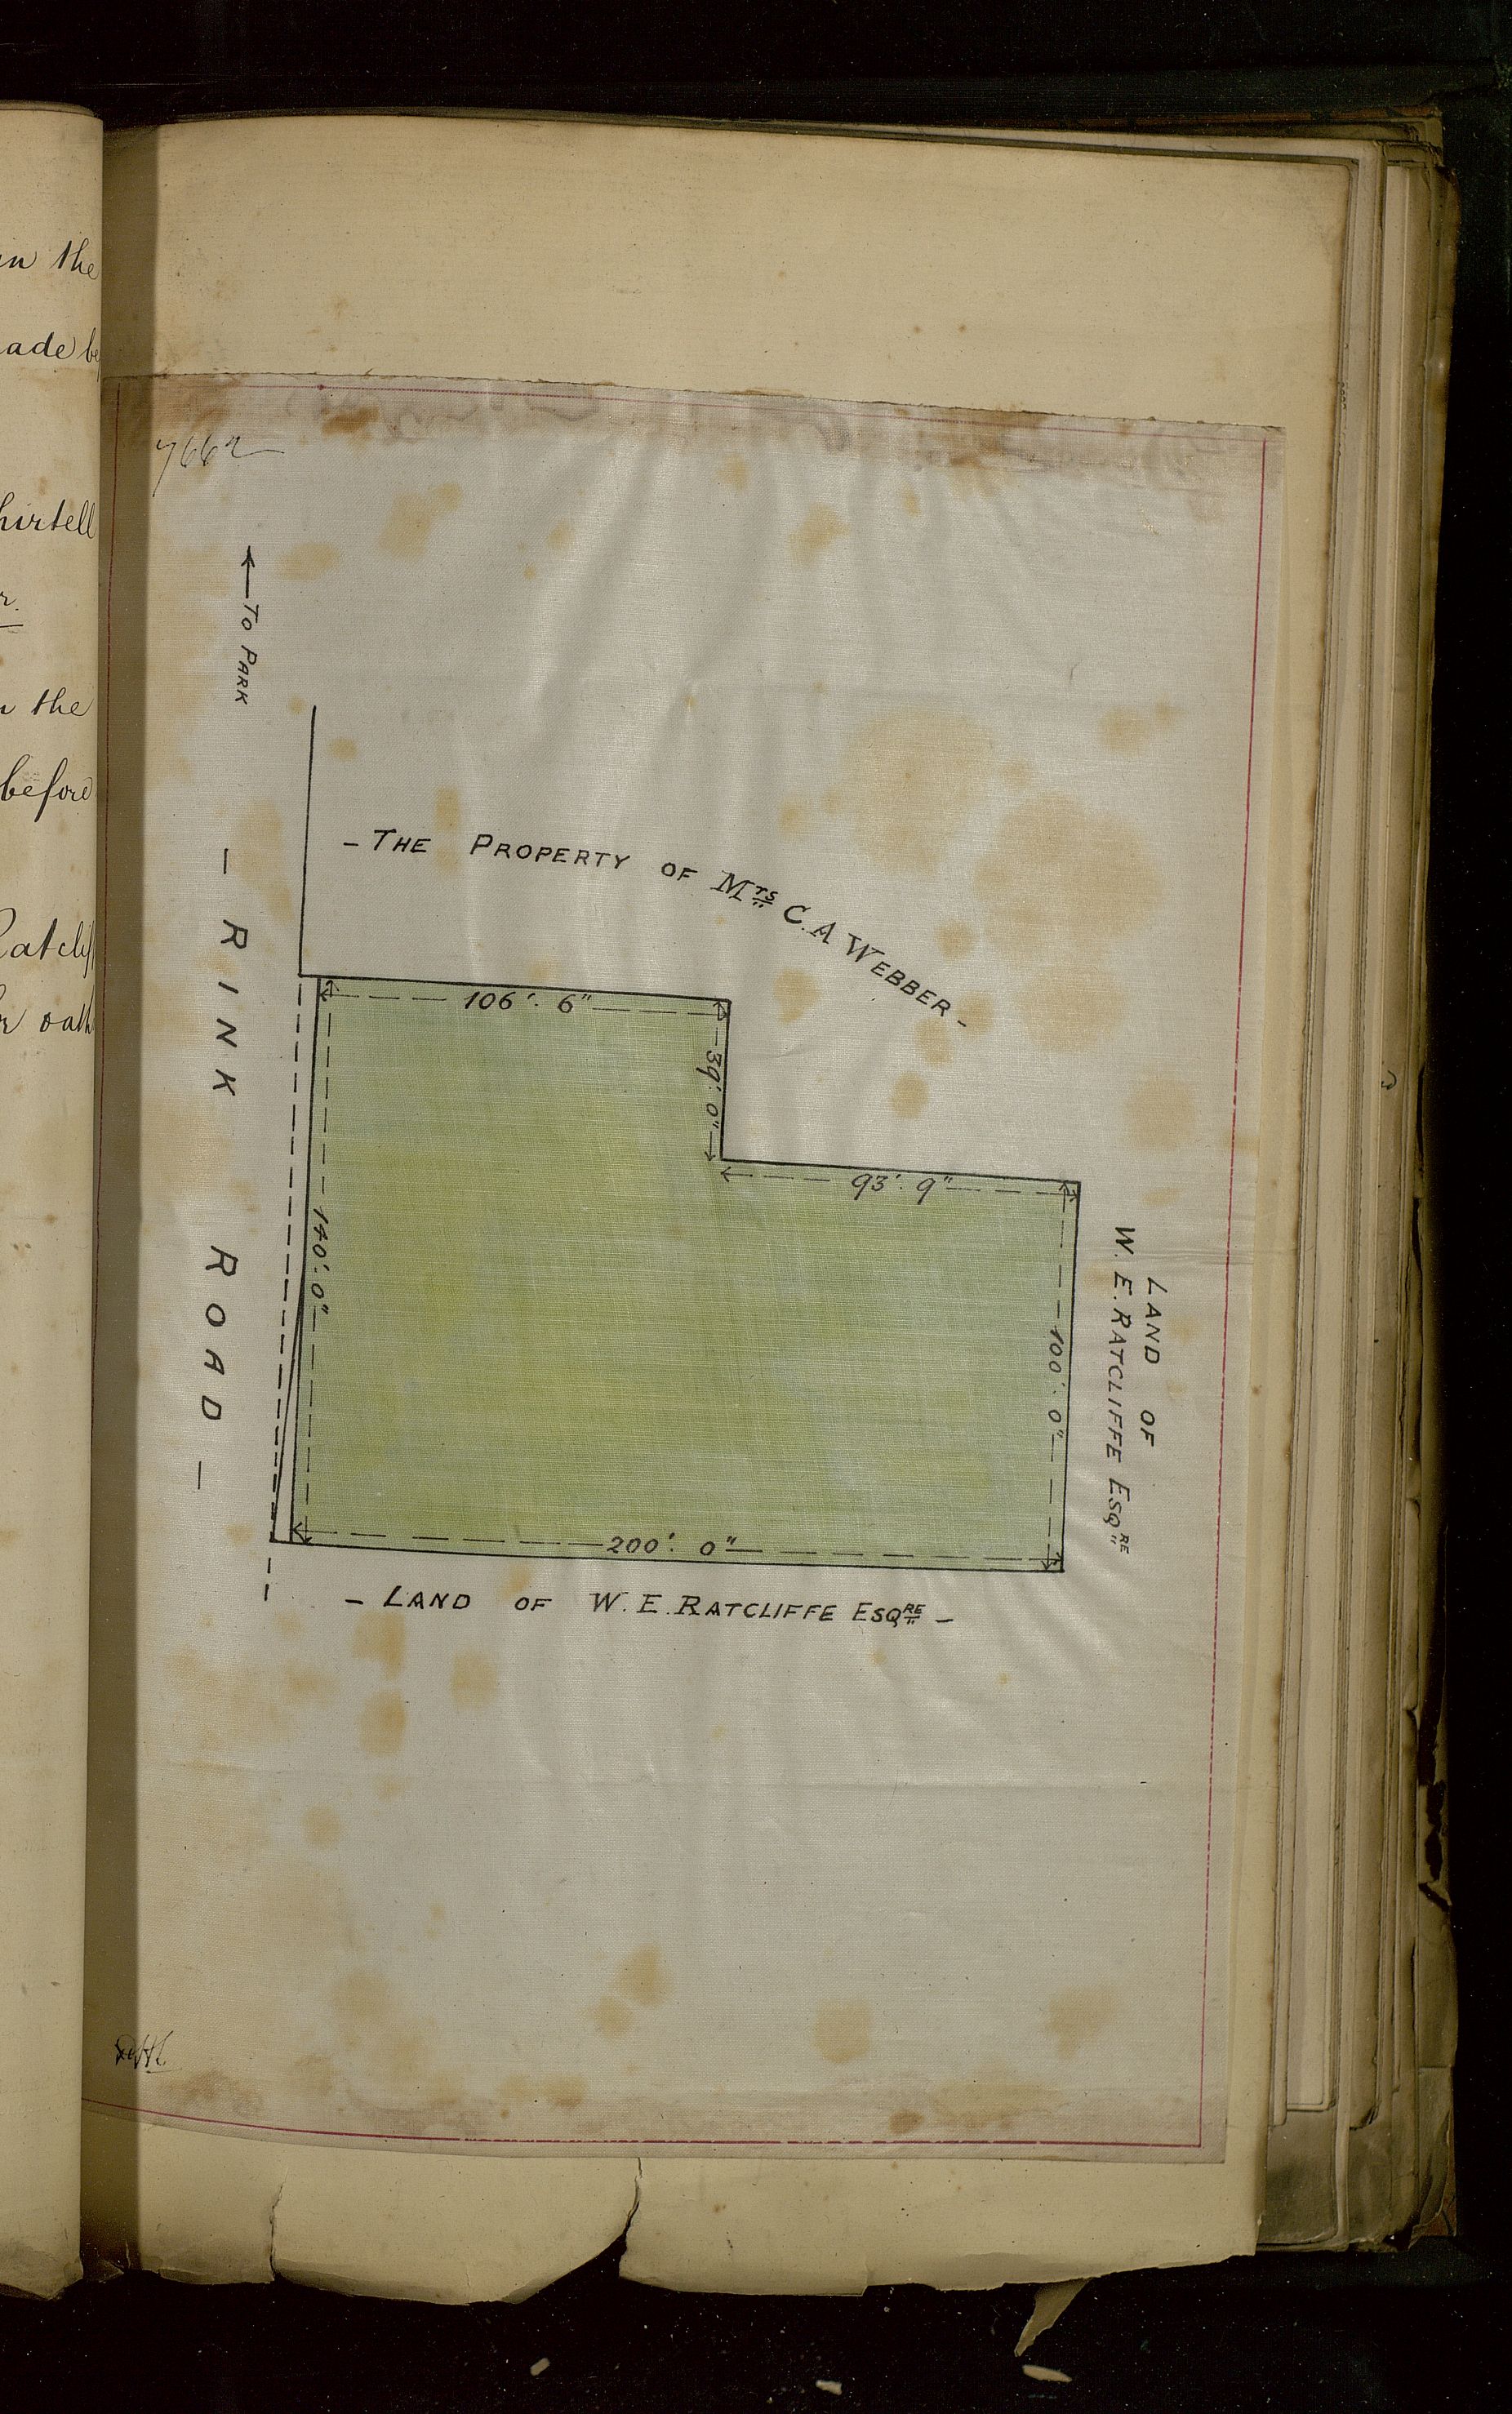 in the
ade be
hirtell
r.
the
before
Ratclif
r oath
7662
← TO PARK
– THE PROPERTY OF Mrs C.A WEBBER –
– RINK ROAD –
106'. 6"
39'. 0"
93'. 9"
140'. 0"
100'. 0"
200'. 0"
LAND OF
W. E. RATCLIFFE ESQRE
– LAND OF W. E. RATCLIFFE ESQRE –